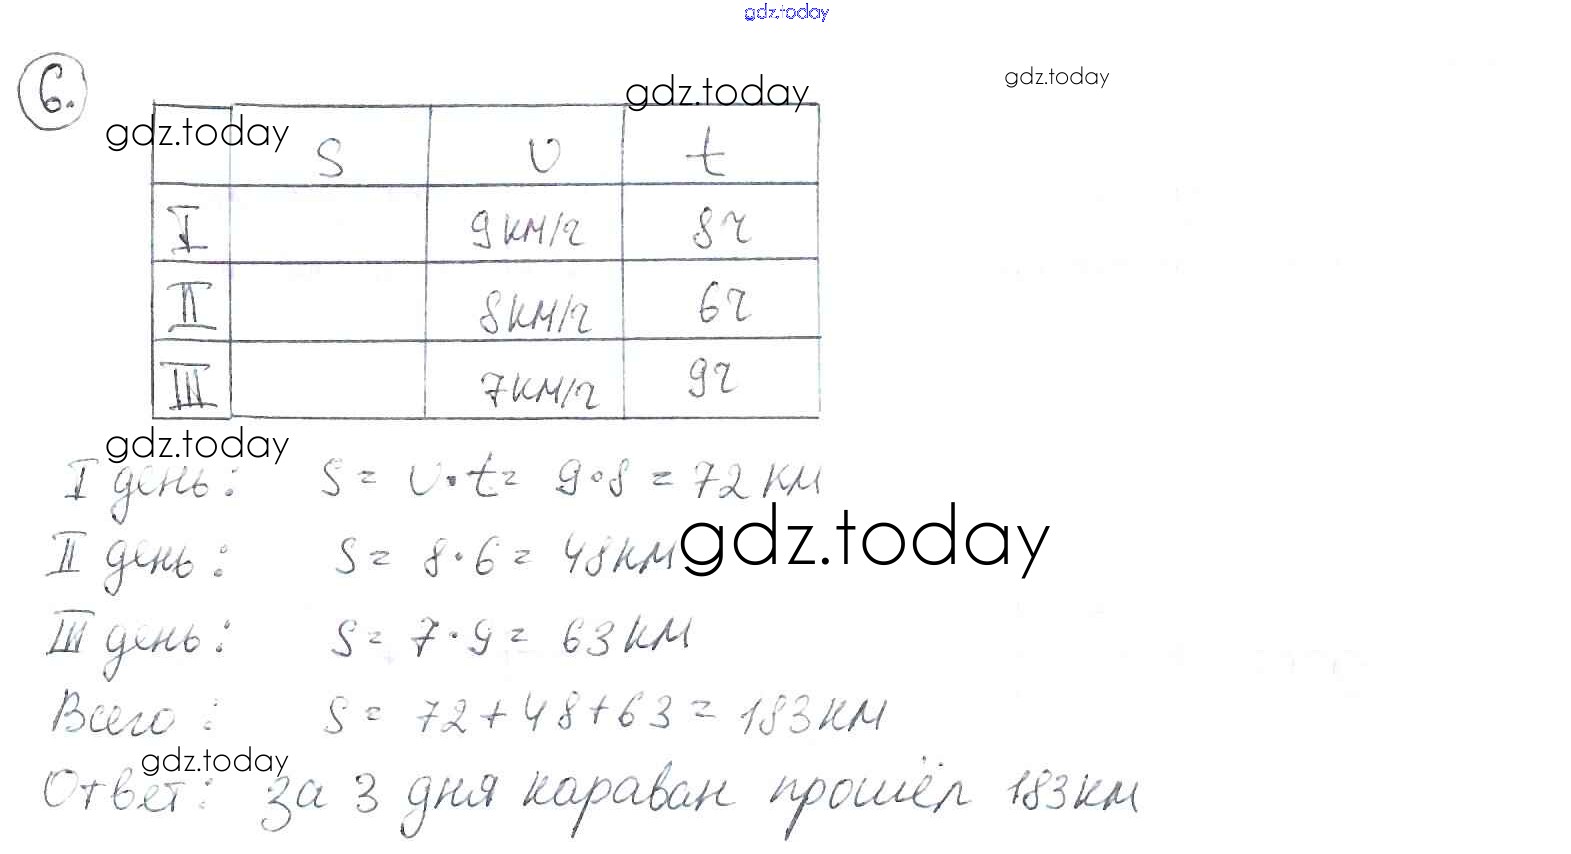 gdz.today
6.
gdz.today
gdz.today
gdz.today
S υ t
I 9км/ч 8ч
II 8км/ч 6ч
III 7км/ч 9ч
gdz.today
I день: S = υ·t = 9·8 = 72км
II день: S = 8·6 = 48км
gdz.today
III день: S = 7·9 = 63км
Всего: S = 72+48+63 = 183км
gdz.today
Ответ: за 3 дня караван прошёл 183км